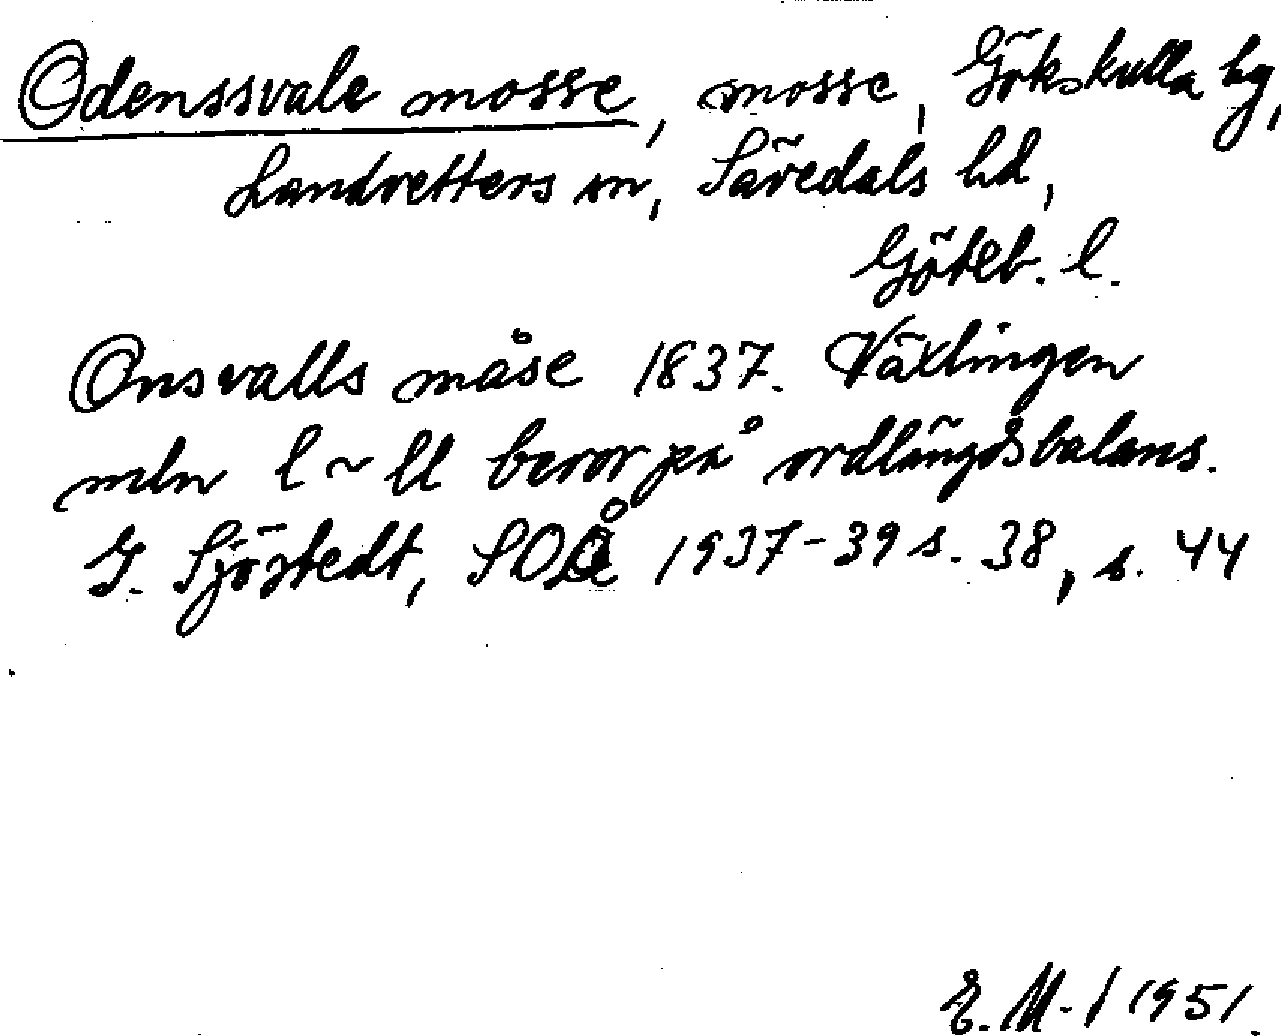 Odenssvale mosse, mosse, Gökskulla by,
Landvetters sn, Sävedals hd,
Göteb. l.
Onsvalls måse 1837. Växlingen
mln l ~ ll beror på ordlängdsbalans.
G. Sjöstedt, SOÅ 1937-39 s. 38, s. 44
E. M-/ 1951.